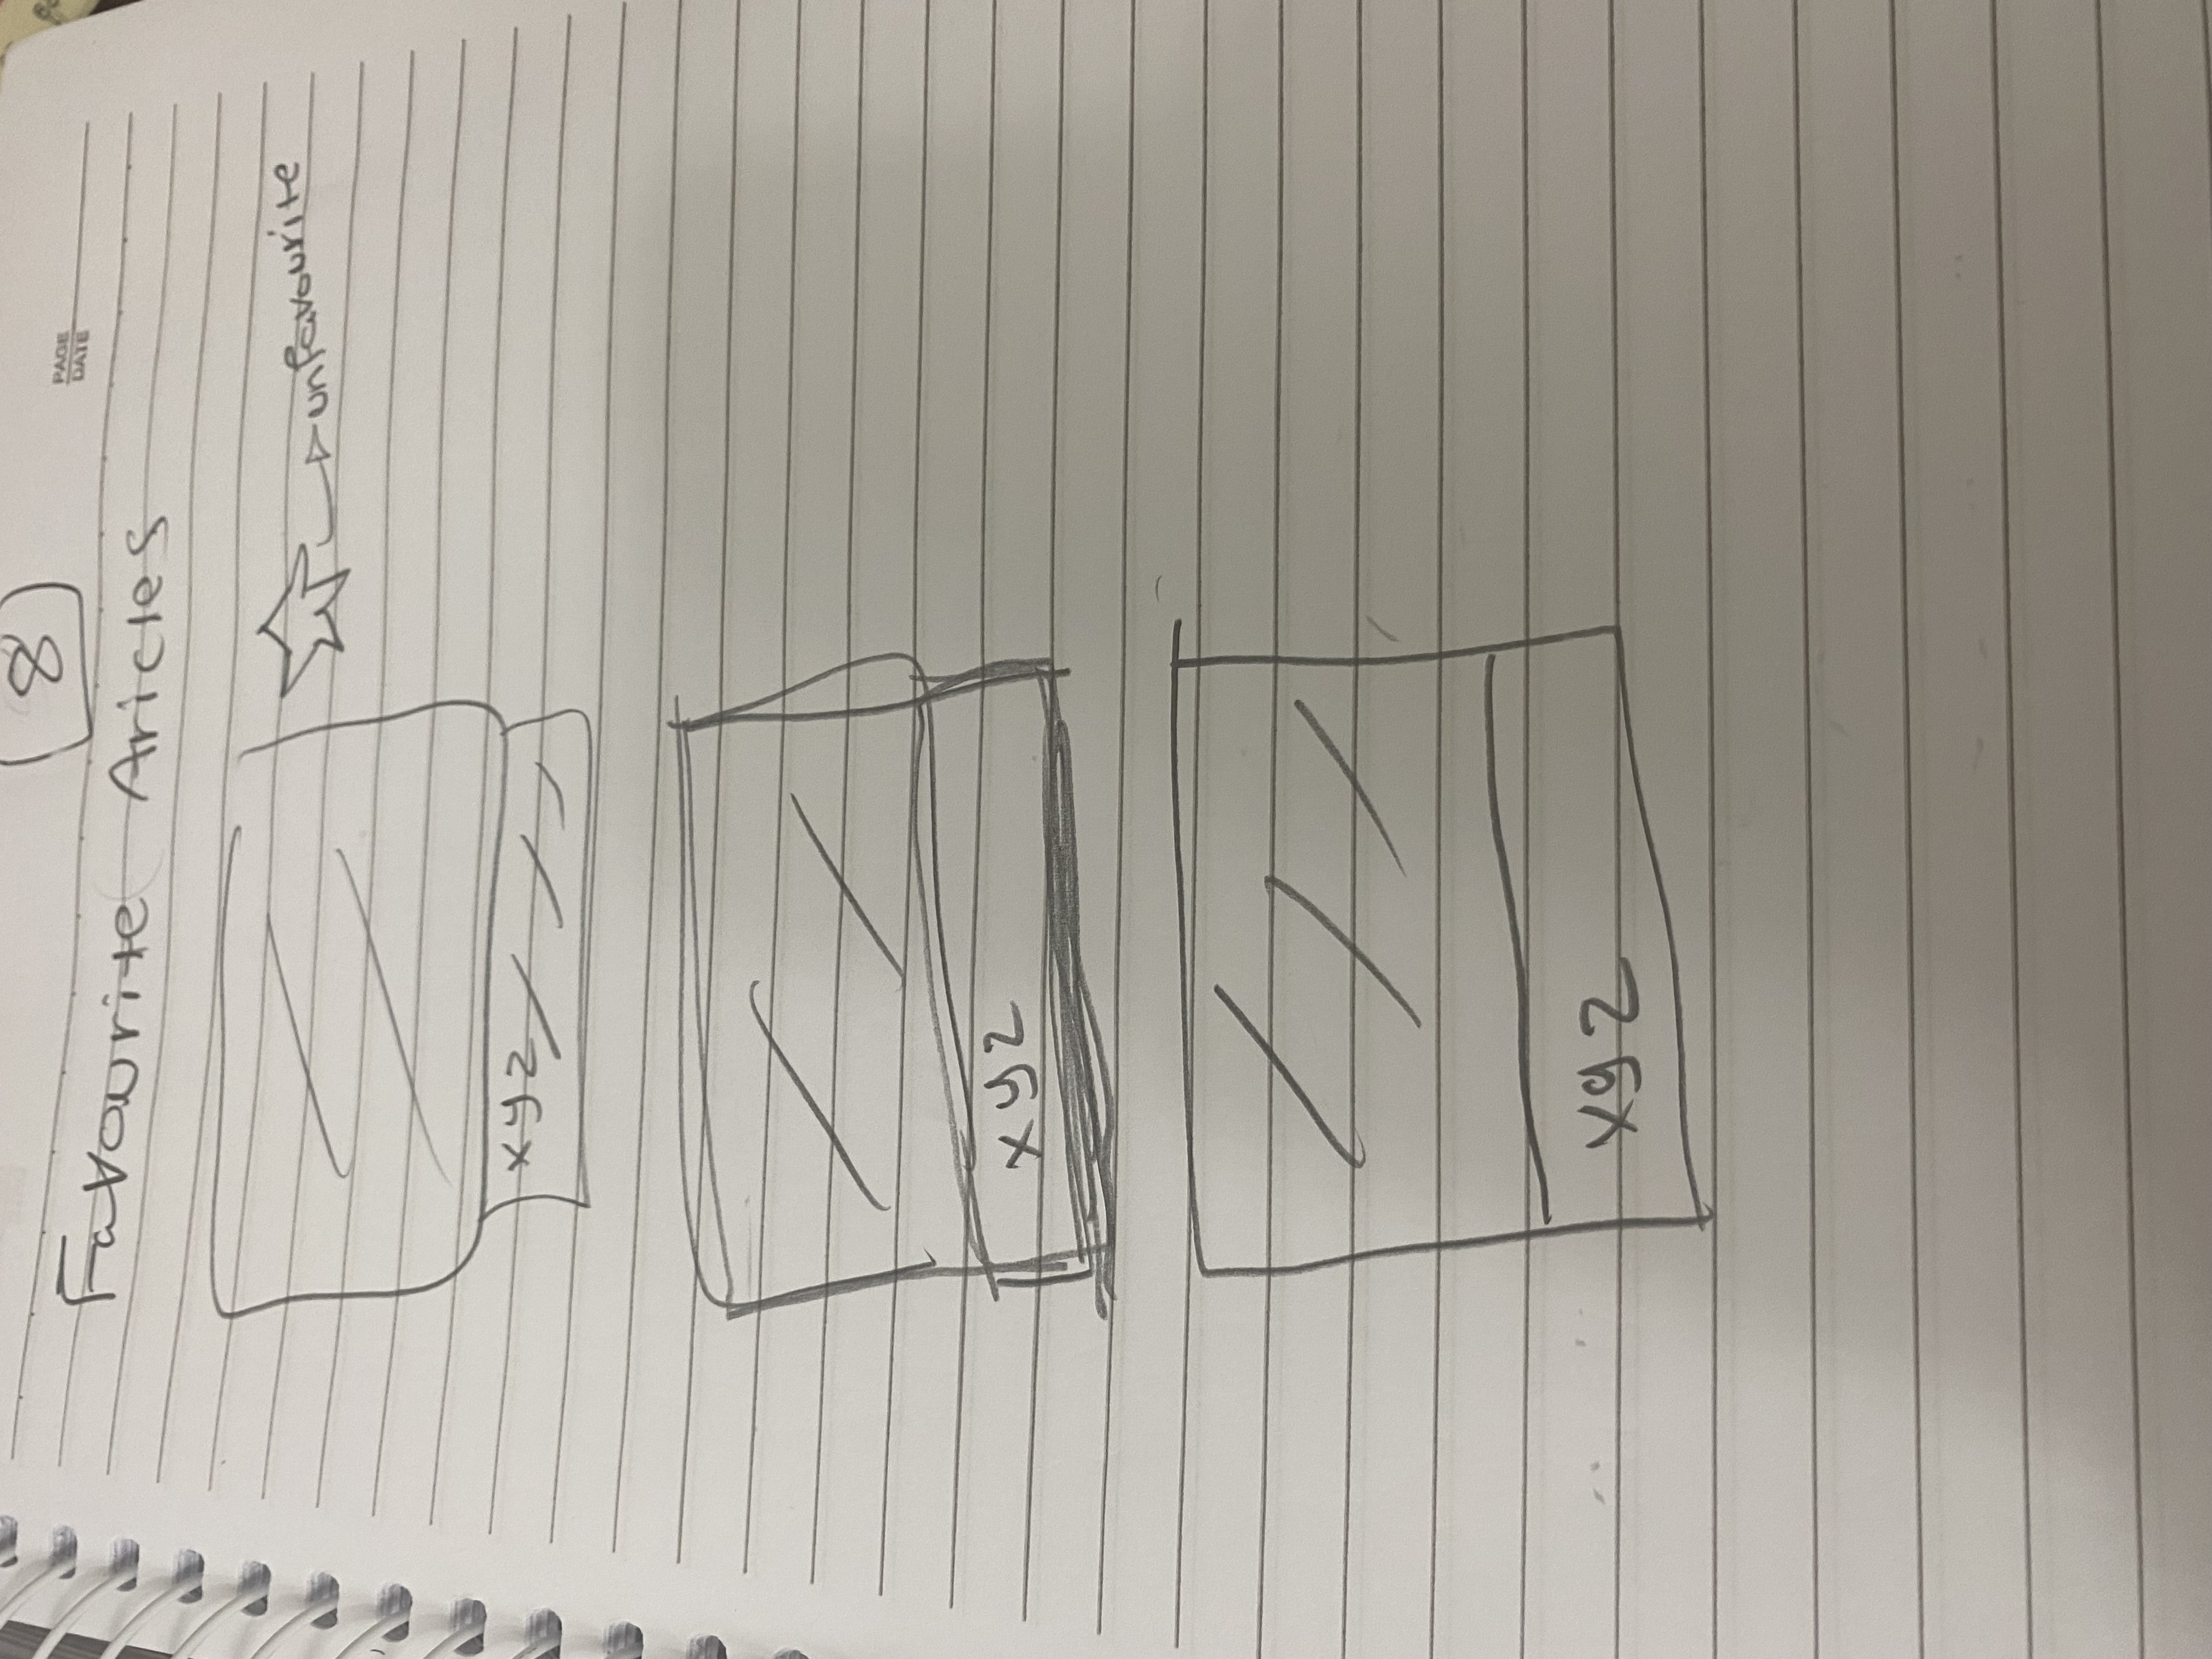 8
PAGE
DATE
Favourite Aricles
unfavourite
xyz
xyz
xyz